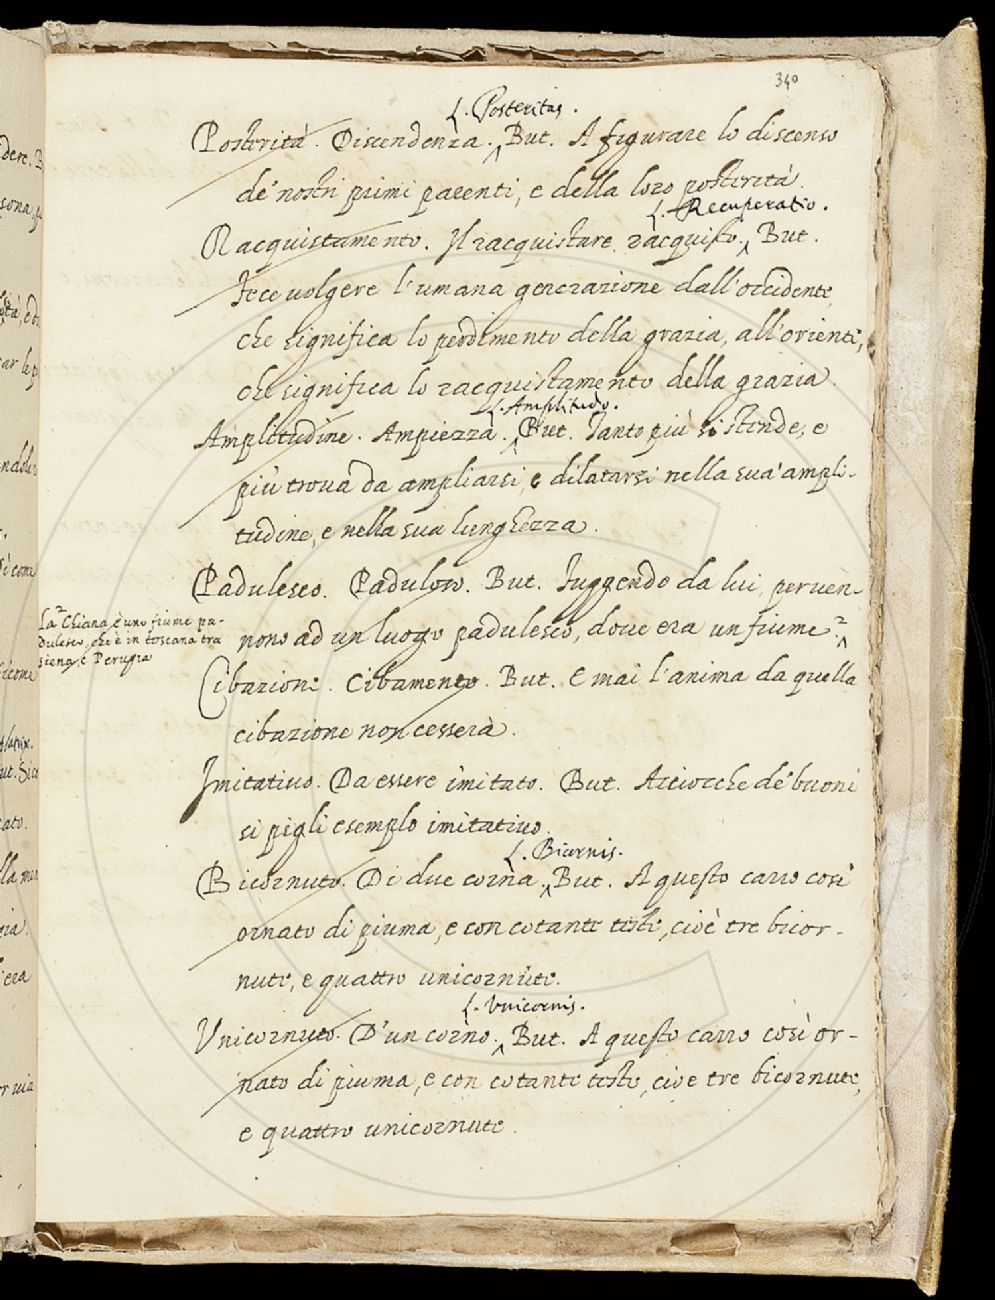 340
L. Posteritas.
Posterità. Discendenza. ^ But. A figurare lo discenso
de' nostri primi parenti, e della loro posterità.
L. Recuperatio.
Racquistamento. Il racquistare, racquisto. ^ But.
Fece volgere l'umana generazione dall'occidente,
che significa lo perdimento della grazia, all'oriente,
che significa lo racquistamento della grazia.
L. Amplitudo.
Amplitudine. Ampiezza. ^ But. Tanto più si stende, e
più trova da ampliarsi, e dilatarsi nella sua ampli-
tudine, e nella sua lunghezza.
Padulesco. Paduloso. But. Fuggendo da lui, perven-
nono ad un luogo padulesco, dove era un fiume. ^
La Chiana è uno fiume pa-
dulesco, che è in toscana tra
siena, e Perugia
Cibazione. Cibamento. But. E mai l'anima da quella
cibazione non cesserà.
Imitativo. Da essere imitato. But. Acciocche de' buoni
si pigli esemplo imitativo.
L. Bicornis.
Bicornuto. Di due corna. ^ But. A questo carro così
ornato di piuma, e con cotante teste, cioè tre bicor-
nute, e quattro unicornute.
L. Unicornis.
Unicornuto. D'un corno. ^ But. A questo carro così or-
nato di piuma, e con cotante teste, cioè tre bicornute,
e quattro unicornute.